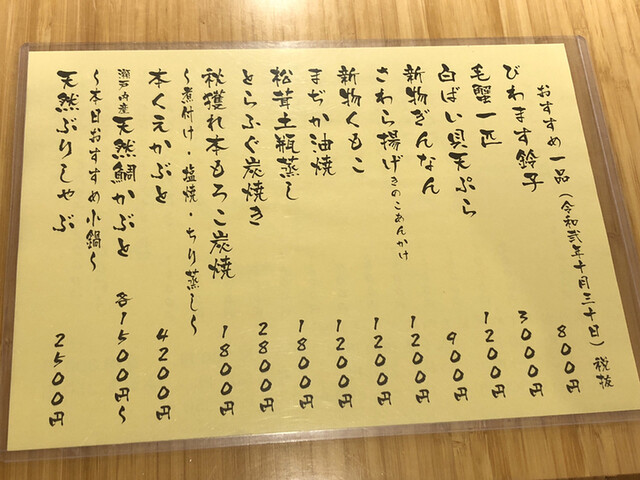 おすすめ一品(令和弐年十月三十日)税抜
びわます鈴子 800円
毛蟹一匹 3000円
白ばい貝天ぷら 1200円
新物ぎんなん 900円
さわら揚げきのこあんかけ 1200円
新物くもこ 1200円
まぢか油焼 1200円
松茸土瓶蒸し 1800円
とらふぐ炭焼き 2800円
秋獲れ本もろこ炭焼 1800円
〜煮付け・塩焼・ちり蒸し〜
本くえかぶと 4200円
瀬戸内産天然鯛かぶと 各1500円〜
〜本日おすすめ小鍋〜
天然ぶりしゃぶ 2500円